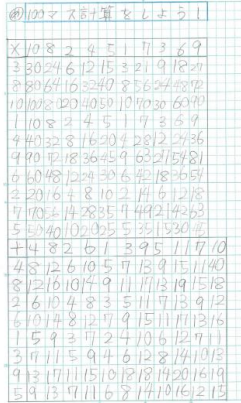 100マス計算をしよう！
× 10 8 2 4 5 1 7 3 6 9
3 30 24 6 12 15 3 21 9 18 27
8 80 64 16 32 40 8 56 24 48 72
10 100 80 20 40 50 10 70 30 60 90
1 10 8 2 4 5 1 7 3 6 9
4 40 32 8 16 20 4 28 12 24 36
9 90 72 18 36 45 9 63 27 54 81
6 60 48 12 24 30 6 42 18 36 54
2 20 16 4 8 10 2 14 6 12 18
7 70 56 14 28 35 7 49 21 42 63
5 50 40 10 20 25 5 35 15 30 45
+ 4 8 2 6 1 3 9 5 11 7 10
4 8 12 6 10 5 7 13 9 15 11
8 12 16 10 14 9 11 17 13 19 15 18
2 6 10 4 8 3 5 11 7 13 9 12
6 10 14 8 12 7 9 15 11 17 13 16
1 5 9 3 7 2 4 10 6 12 11
3 7 11 5 9 4 6 12 8 14 10 13
9 13 17 11 15 10 18 14 20 16 19
5 9 13 7 11 6 8 14 10 16 12 15